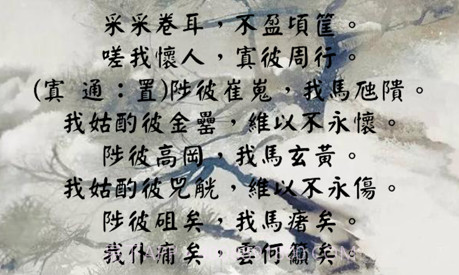 采采卷耳，不盈頃筐。
嗟我懷人，寘彼周行。
(寘 通：置)陟彼崔嵬，我馬虺隤。
我姑酌彼金罍，維以不永懷。
陟彼高岡，我馬玄黃。
我姑酌彼兕觥，維以不永傷。
陟彼砠矣，我馬瘏矣。
我仆痡矣，雲何籲矣